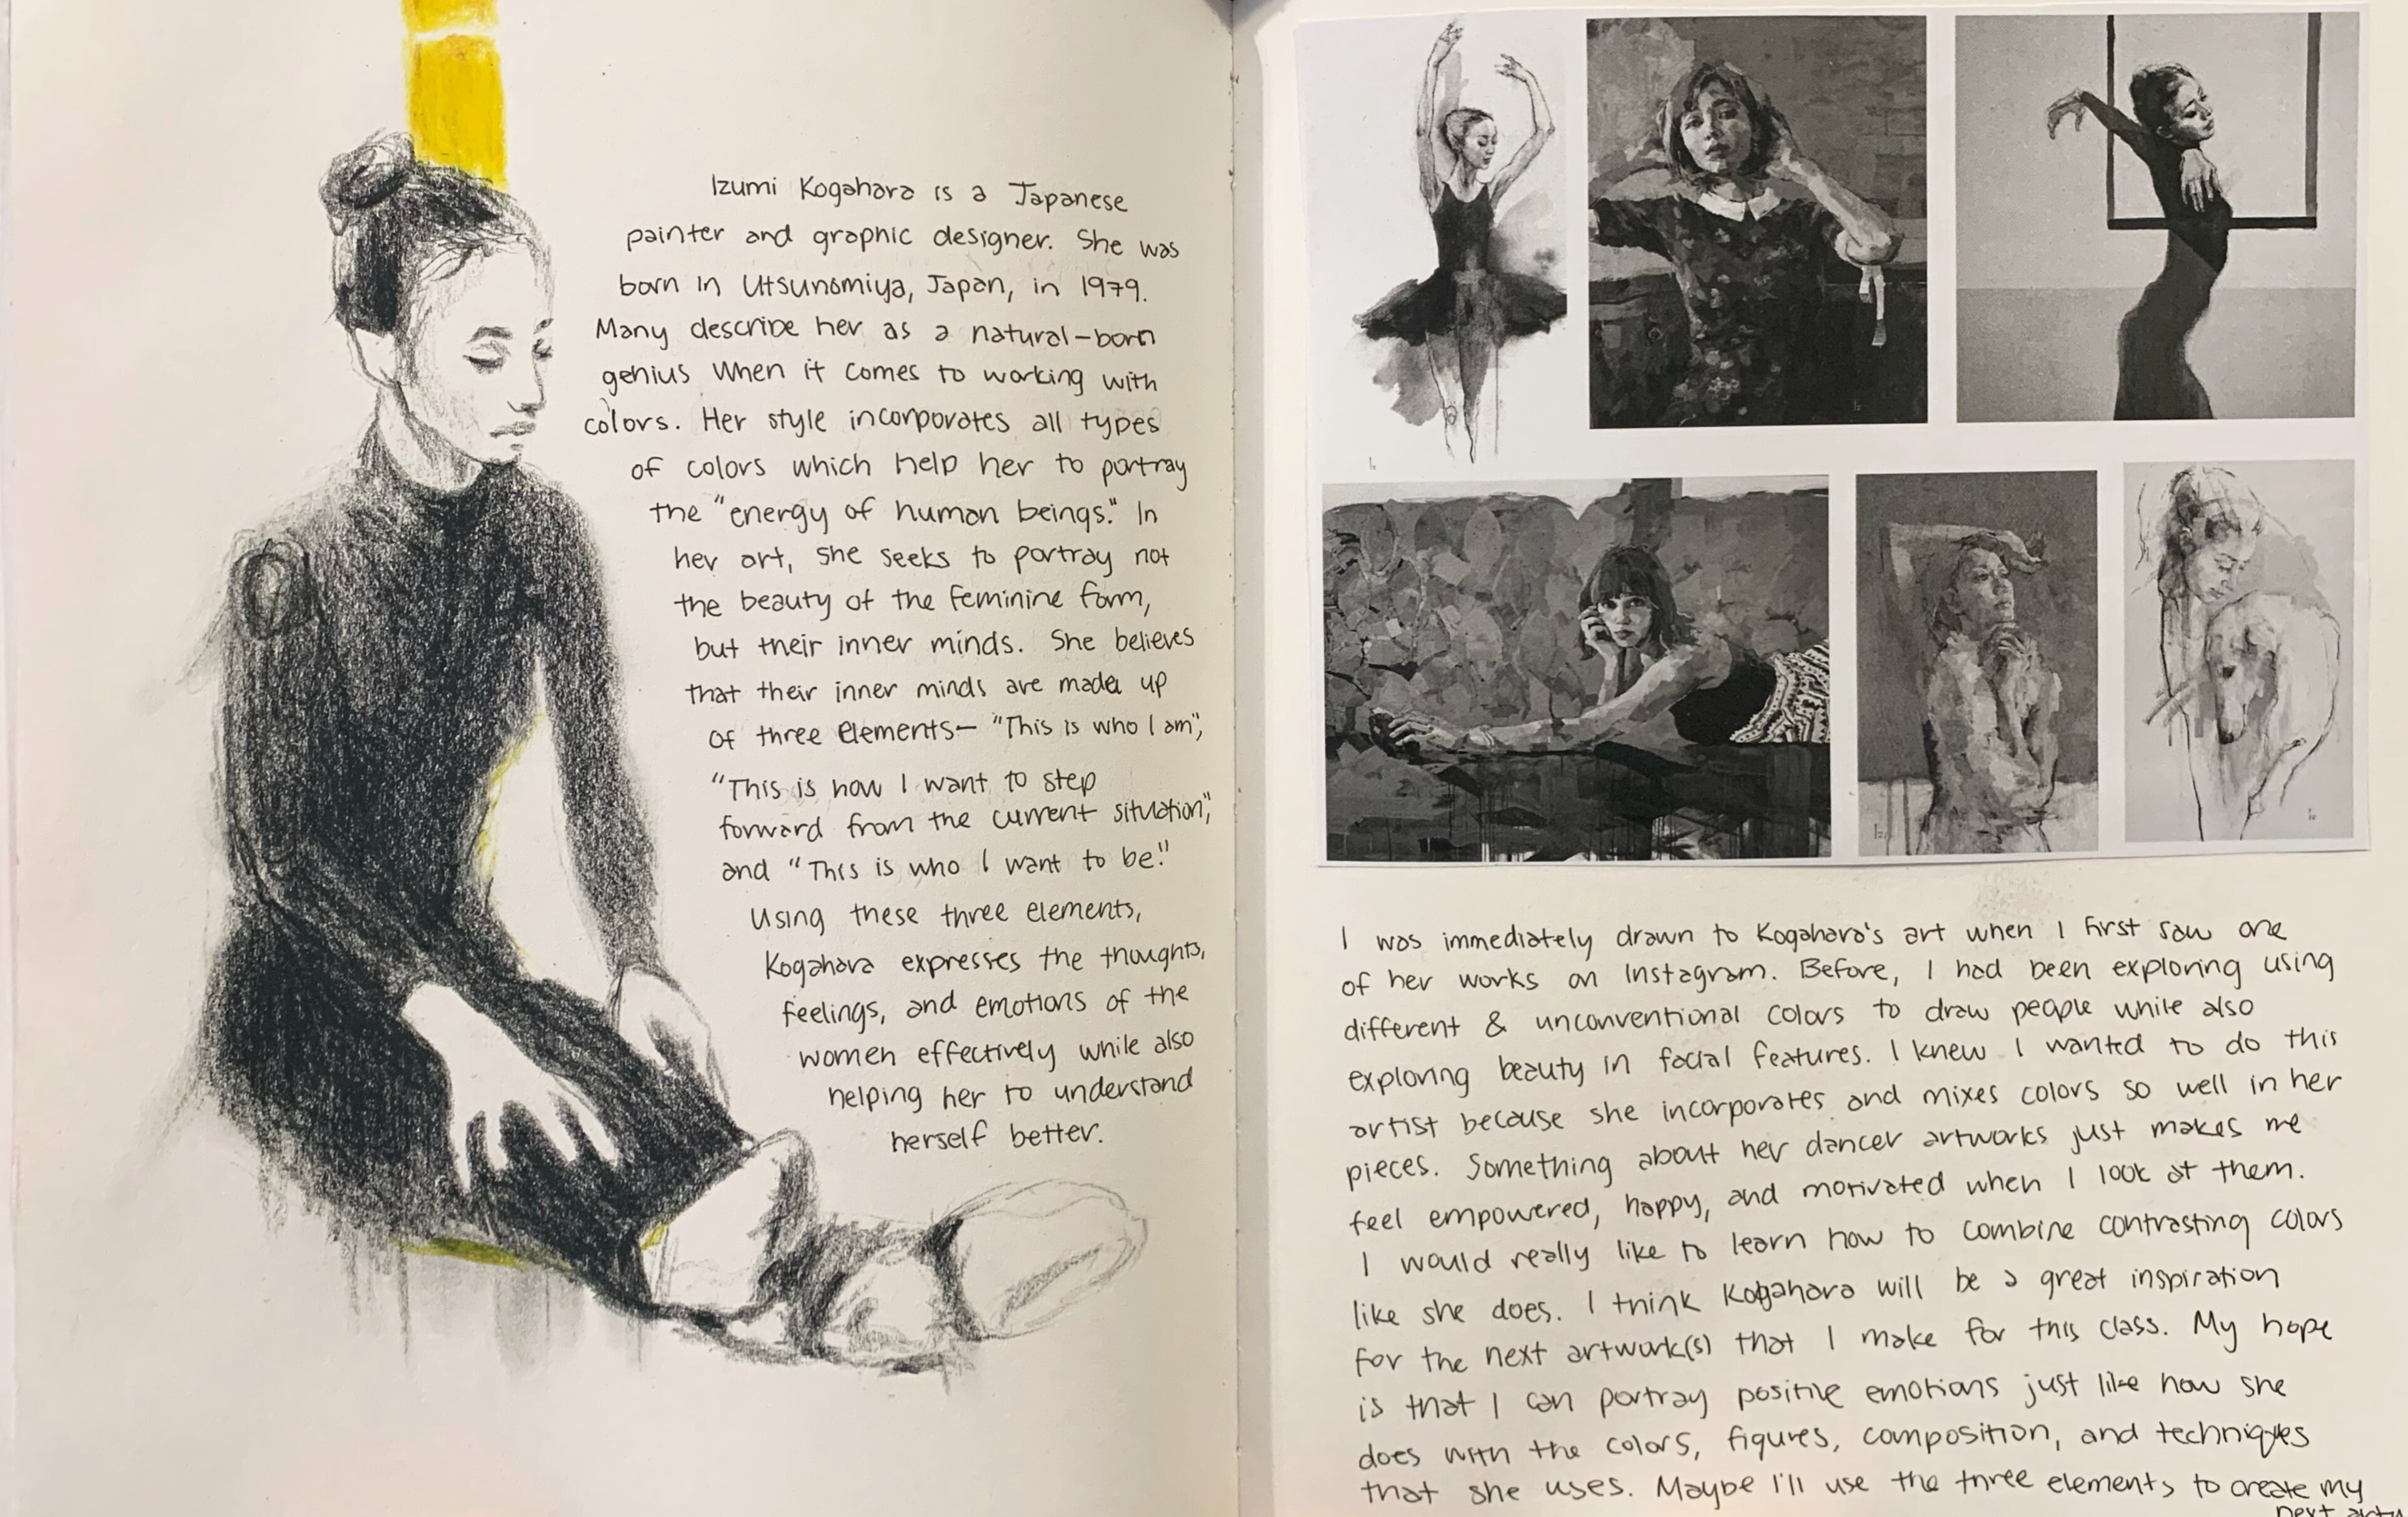 Izumi Kogahara is a Japanese
painter and graphic designer. She was
born in Utsunomiya, Japan, in 1979.
Many describe her as a natural-born
genius when it comes to working with
colors. Her style incorporates all types
of colors which help her to portray
the "energy of human beings." In
her art, she seeks to portray not
the beauty of the feminine form,
but their inner minds. She believes
that their inner minds are made up
of three elements— "This is who I am",
"This is how I want to step
forward from the current situation",
and "This is who I want to be."
Using these three elements,
Kogahara expresses the thoughts,
feelings, and emotions of the
women effectively while also
helping her to understand
herself better.
I was immediately drawn to Kogahara's art when I first saw one
of her works on Instagram. Before, I had been exploring using
different & unconventional colors to draw people while also
exploring beauty in facial features. I knew I wanted to do this
artist because she incorporates and mixes colors so well in her
pieces. Something about her dancer artworks just makes me
feel empowered, happy, and motivated when I look at them.
I would really like to learn how to combine contrasting colors
like she does. I think Kogahara will be a great inspiration
for the next artwork(s) that I make for this class. My hope
is that I can portray positive emotions just like how she
does with the colors, figures, composition, and techniques
that she uses. Maybe I'll use the three elements to create my
next